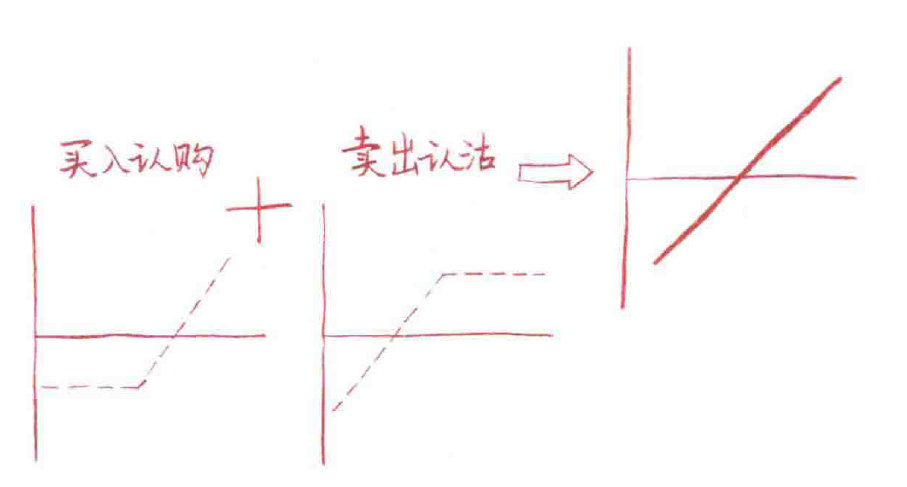 买入认购
卖出认沽